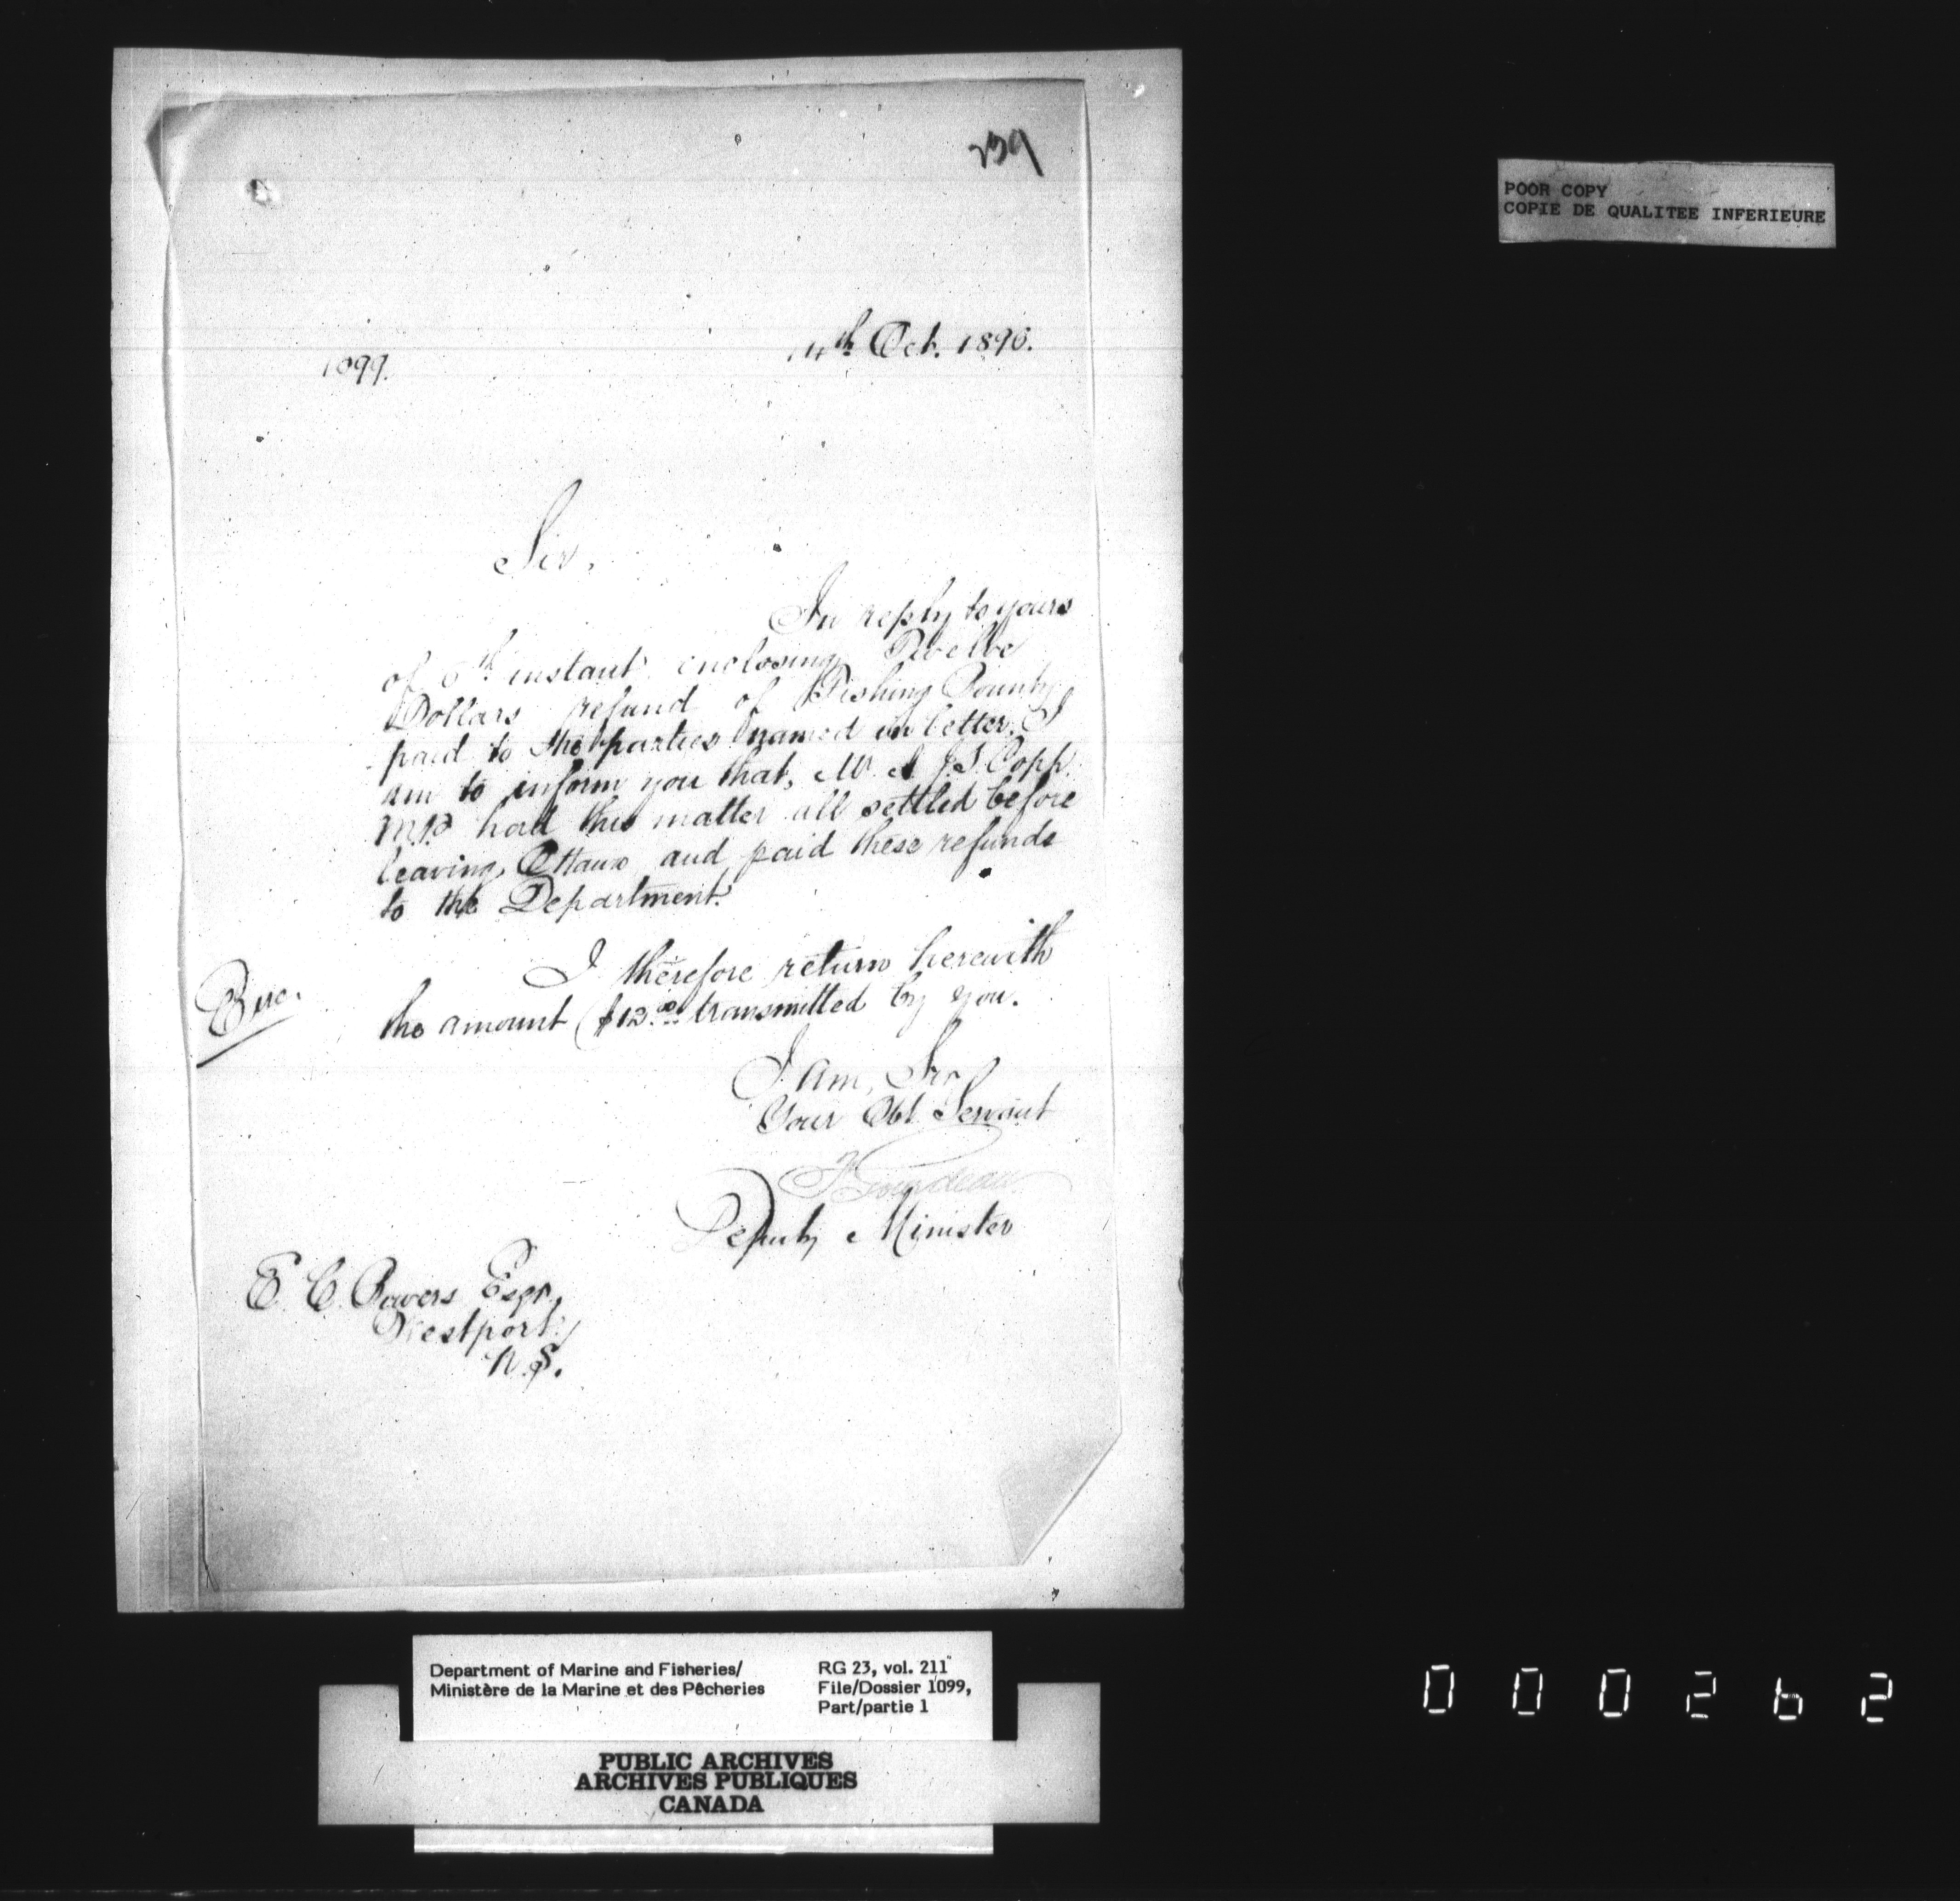 259
POOR COPY
COPIE DE QUALITEE INFERIEURE
14th Oct. 1896.
1099.
Sir,
In reply to yours
of 6th instant enclosing Twelve
Dollars refund of Fishing Bounty
paid to the parties named in letter. I
am to inform you that, Mr. A. J. S. Copp.
M.P. had this matter all settled before
leaving Ottawa and paid these refunds
to the Department.
I therefore return herewith
the amount ($12.00 transmitted by you.
Enc.
I am, Sir
Your Obt. Servant
F Gourdeau
Deputy Minister
E. C. Bowers Esqr.
Westport,
N.S.
Department of Marine and Fisheries/
Ministère de la Marine et des Pêcheries
RG 23, vol. 211
File/Dossier 1099,
Part/partie 1
PUBLIC ARCHIVES
ARCHIVES PUBLIQUES
CANADA
000262